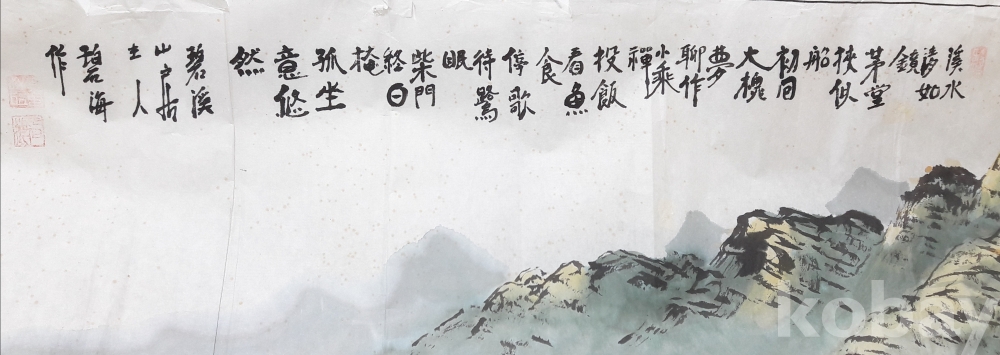 溪水
清如
鏡
茅堂
狹似
船
初回
大槐
夢
聊作
小乘
禪
投飯
看魚
食
停歌
待鷺
眠
柴門
終日
掩
孤坐
意悠
然
碧溪
山房
主人
碧海
作
kobay